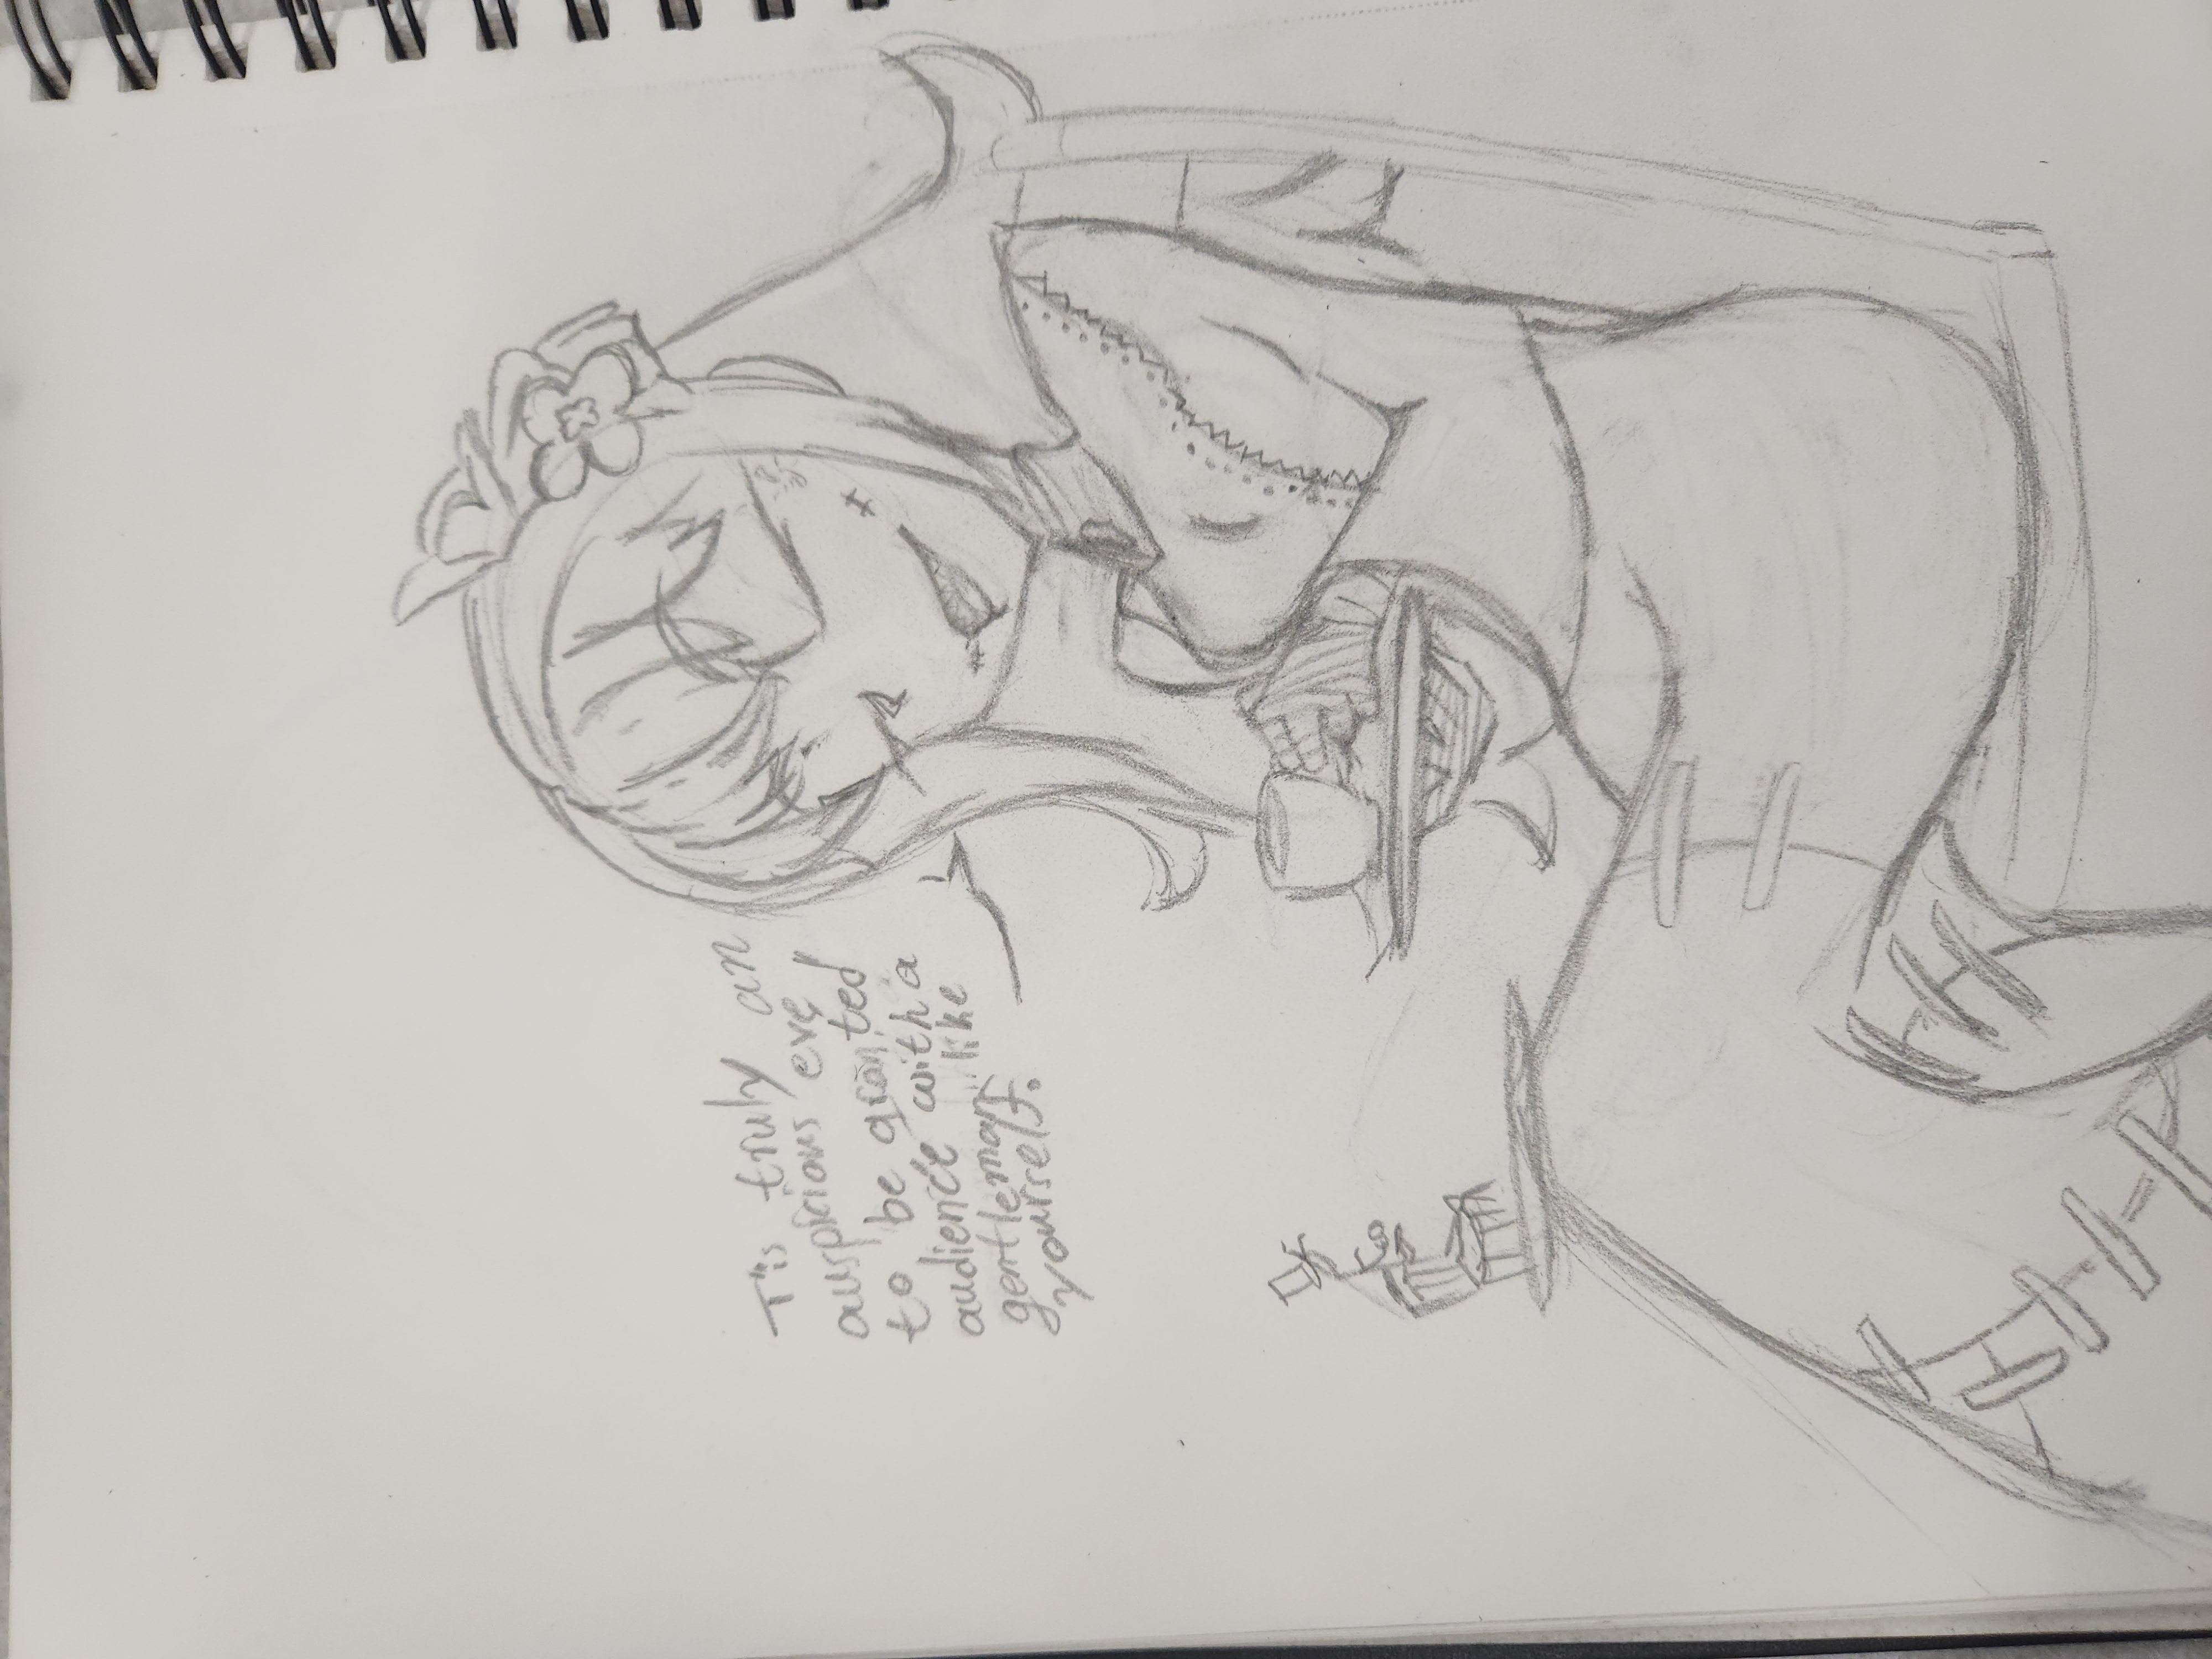 T'is truly an
auspicious eve
to be granted
audience with a
gentleman like
yourself.